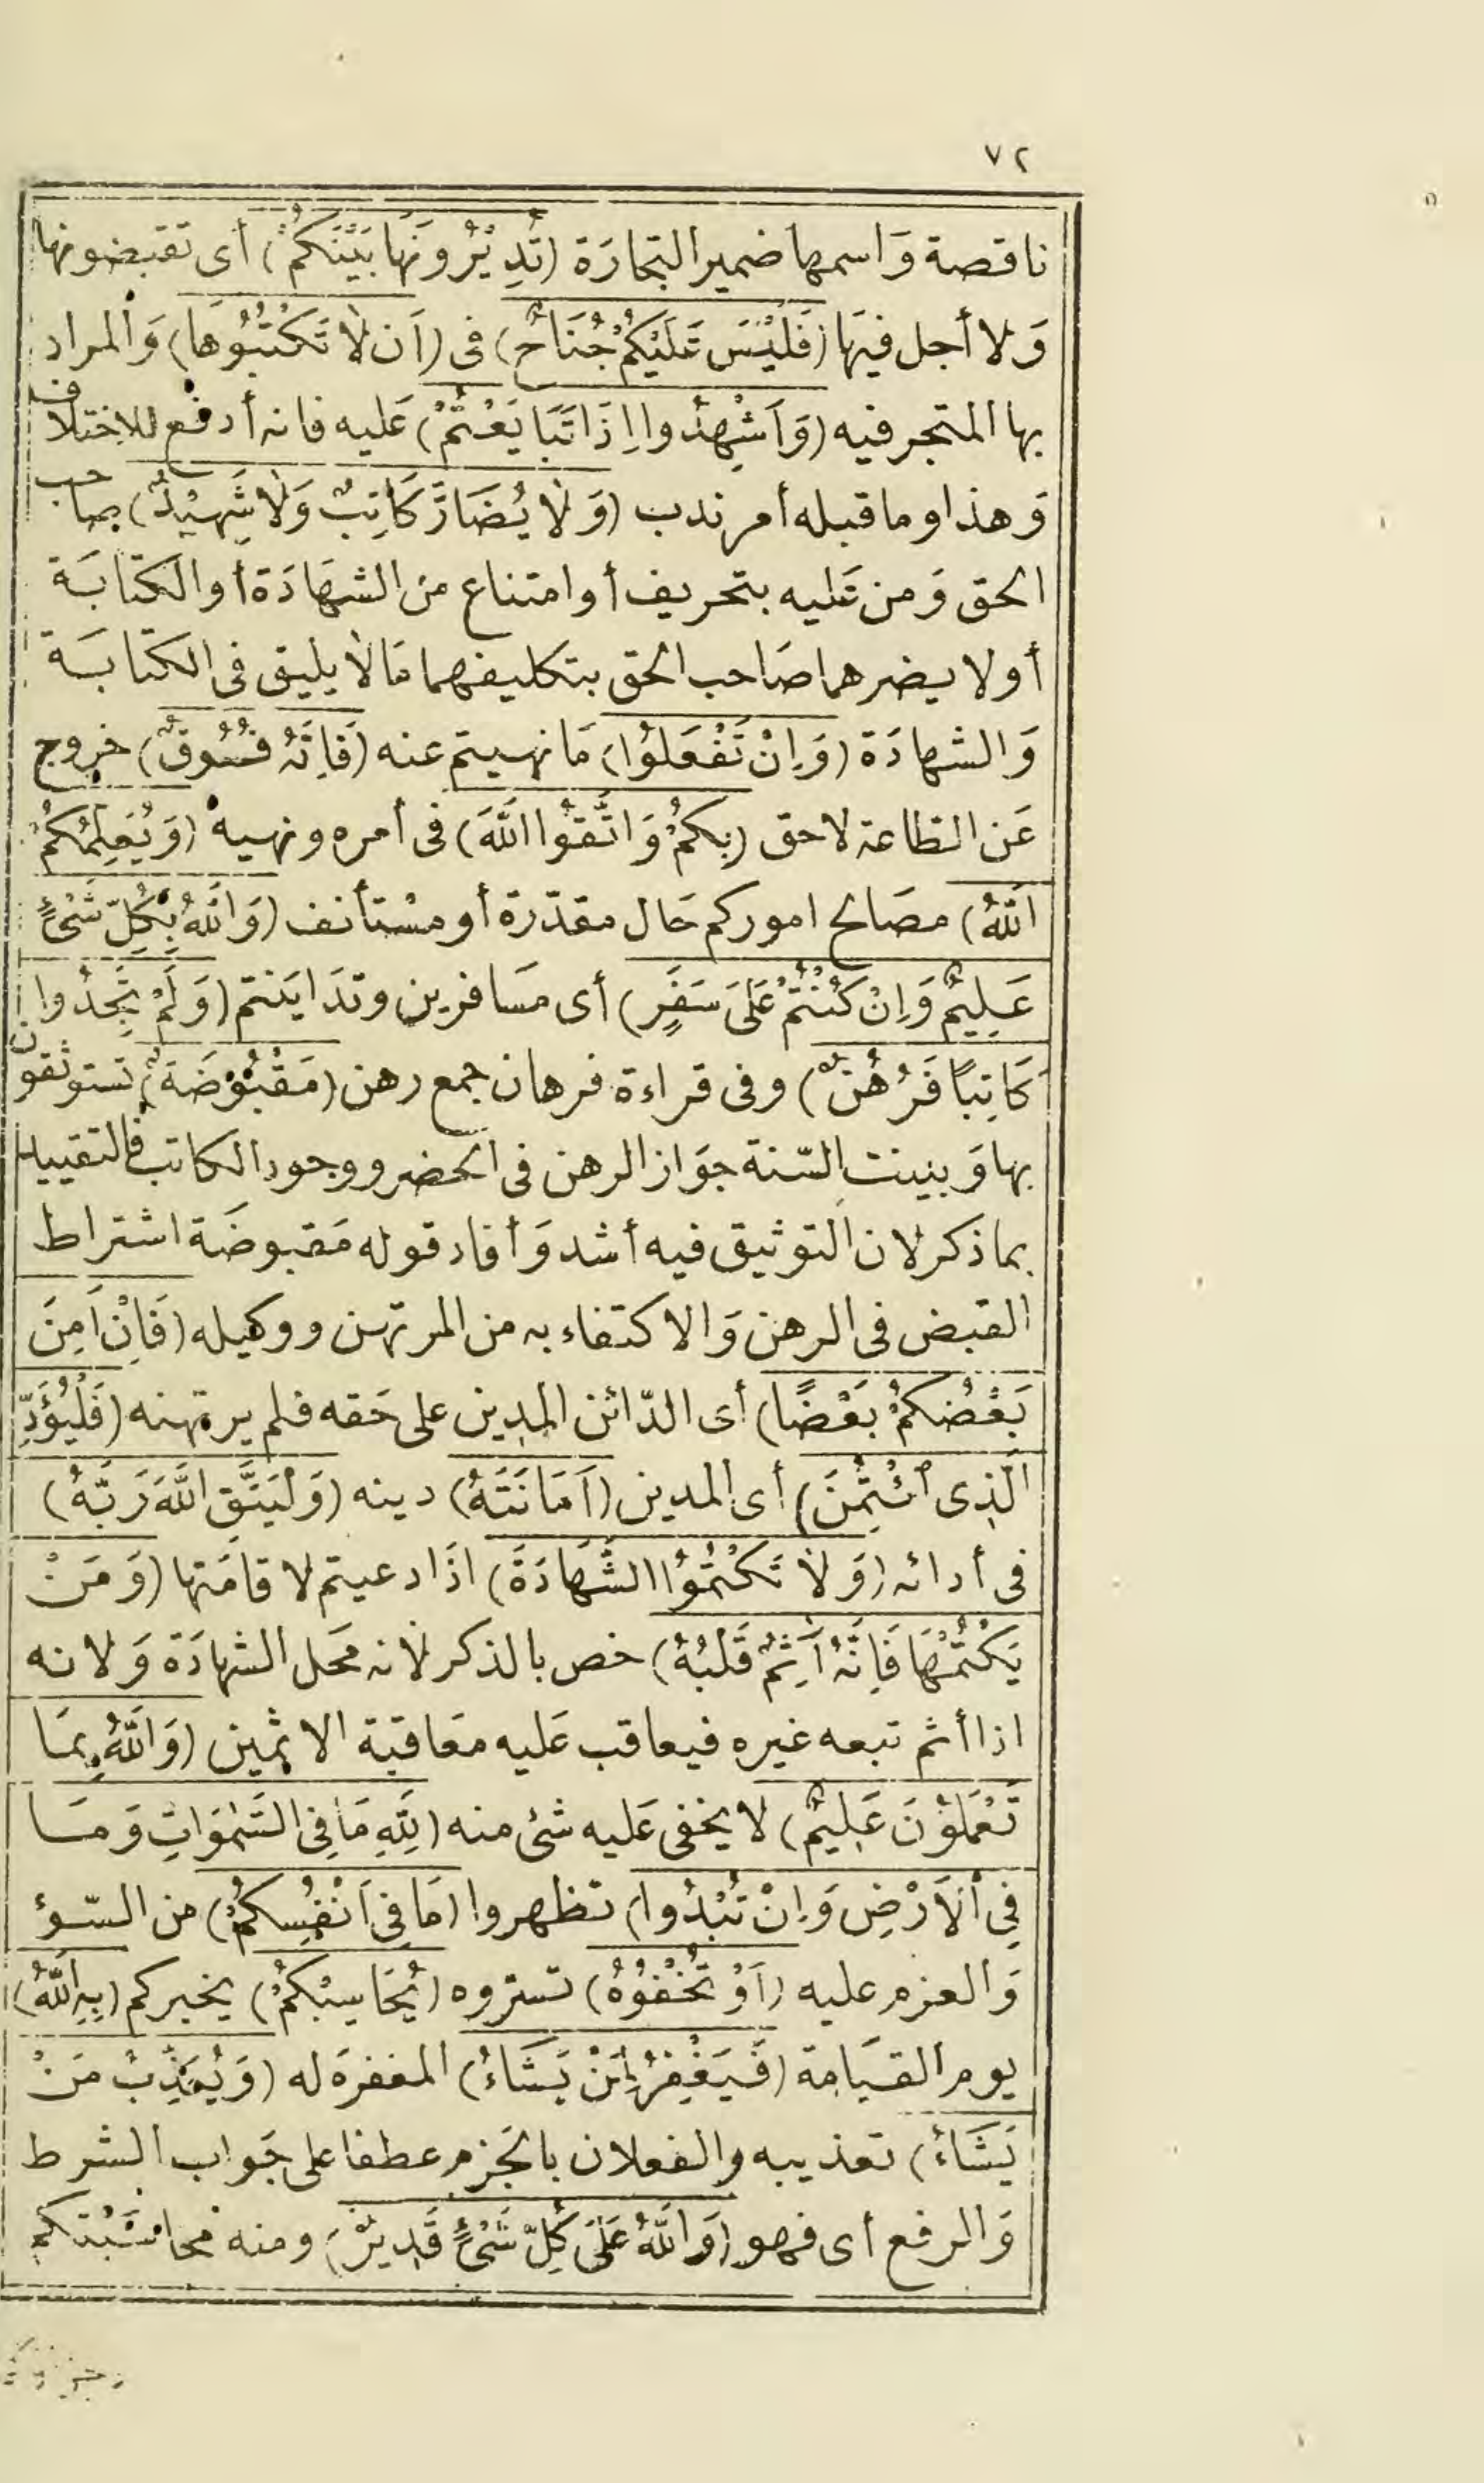 ٧٢
ناقصة وَاسمها ضمير التجارَة (تُدِيْرُونَهَا بَيْنَكُمْ) أى تقبضونها
وَلا أجل فيهَا (فَلَيْسَ عَلَيْكُمْ جُنَاحٌ) فى (اَن لَا تَكْتُبُوْهَا) وَالمراد
بها المتجر فيه (وَاَشْهِدُوا اِذَا تَبَايَعْتُمْ) عَليه فانه أدفع للاختلاف
وَهذا وما قبله أمر ندب (وَلَا يُضَارَّ كَاتِبٌ وَلَا شَهِيْدٌ) صاحب
الحق وَمن عَليه بتحريف أو امتناع من الشهَادَة أو الكتابَة
أو لا يضرهما صَاحب الحق بتكليفهما مَا لا يليق فى الكتابَة
وَالشهادَة (وَاِنْ تَفْعَلُوْا) مَا نهيتم عنه (فَاِنَّهُ فُسُوْقٌ) خروج
عَن الطاعة لاحق (بِكُمْ وَاتَّقُوْا اللّٰهَ) فى أمره ونهيه (وَيُعَلِّمُكُمُ
اللّٰهُ) مصَالح اموركم حَال مقدّرة أو مسْتأنف (وَاللّٰهُ بِكُلِّ شَىْءٍ
عَلِيْمٌ وَاِنْ كُنْتُمْ عَلَىٰ سَفَرٍ) أى مسَافرين وتدَايَنتم (وَلَمْ تَجِدُوا
كَاتِبًا فَرُهُنٌ) وفى قراءة فرهان جمع رهن (مَقْبُوْضَةٌ) تستوثقون
بها وَبينت السّنة جوَاز الرهن فى الحضر ووجود الكاتب فالتقييد
بما ذكر لان التوثيق فيه أشد وَأفاد قوله مَقبوضَة اشتراط
القبض فى الرهن وَالاكتفاء به من المرتهن ووكيله (فَاِنْ اَمِنَ
بَعْضُكُمْ بَعْضًا) أى الدّائن المدين على حَقه فلم يرتهنه (فَلْيُؤَدِّ
الَّذِى ائْتُمِنَ) أى المدين (اَمَانَتَهُ) دينه (وَلْيَتَّقِ اللّٰهَ رَبَّهُ)
فى أدائه (وَلَا تَكْتُمُوْا الشَّهَادَةَ) اذَا دعيتم لاقامَتها (وَمَنْ
يَكْتُمْهَا فَاِنَّهُ آثِمٌ قَلْبُهُ) خص بالذكر لأنه محَل الشهادَة وَلانه
اذا أثم تبعه غيره فيعاقب عَليه معَاقبة الاثمين (وَاللّٰهُ بِمَا
تَعْمَلُوْنَ عَلِيْمٌ) لا يخفى عَليه شئ منه (لِلّٰهِ مَا فِى السَّمٰوَاتِ وَمَا
فِى الْاَرْضِ وَاِنْ تُبْدُوا) تظهروا (مَا فِى اَنْفُسِكُمْ) من السّوء
وَالعزم عليه (اَوْ تُخْفُوْهُ) تستروه (يُحَاسِبْكُمْ) يخبركم (بِهِ اللّٰهُ)
يوم القيَامة (فَيَغْفِرْ لِمَنْ يَشَاءُ) المغفرَة له (وَيُعَذِّبْ مَنْ
يَشَاءُ) تعذيبه والفعلان بالجَزم عطفا على جَواب الشرط
وَالرفع أى فهو (وَاللّٰهُ عَلَىٰ كُلِّ شَىْءٍ قَدِيْرٌ) ومنه محاسَبتكم